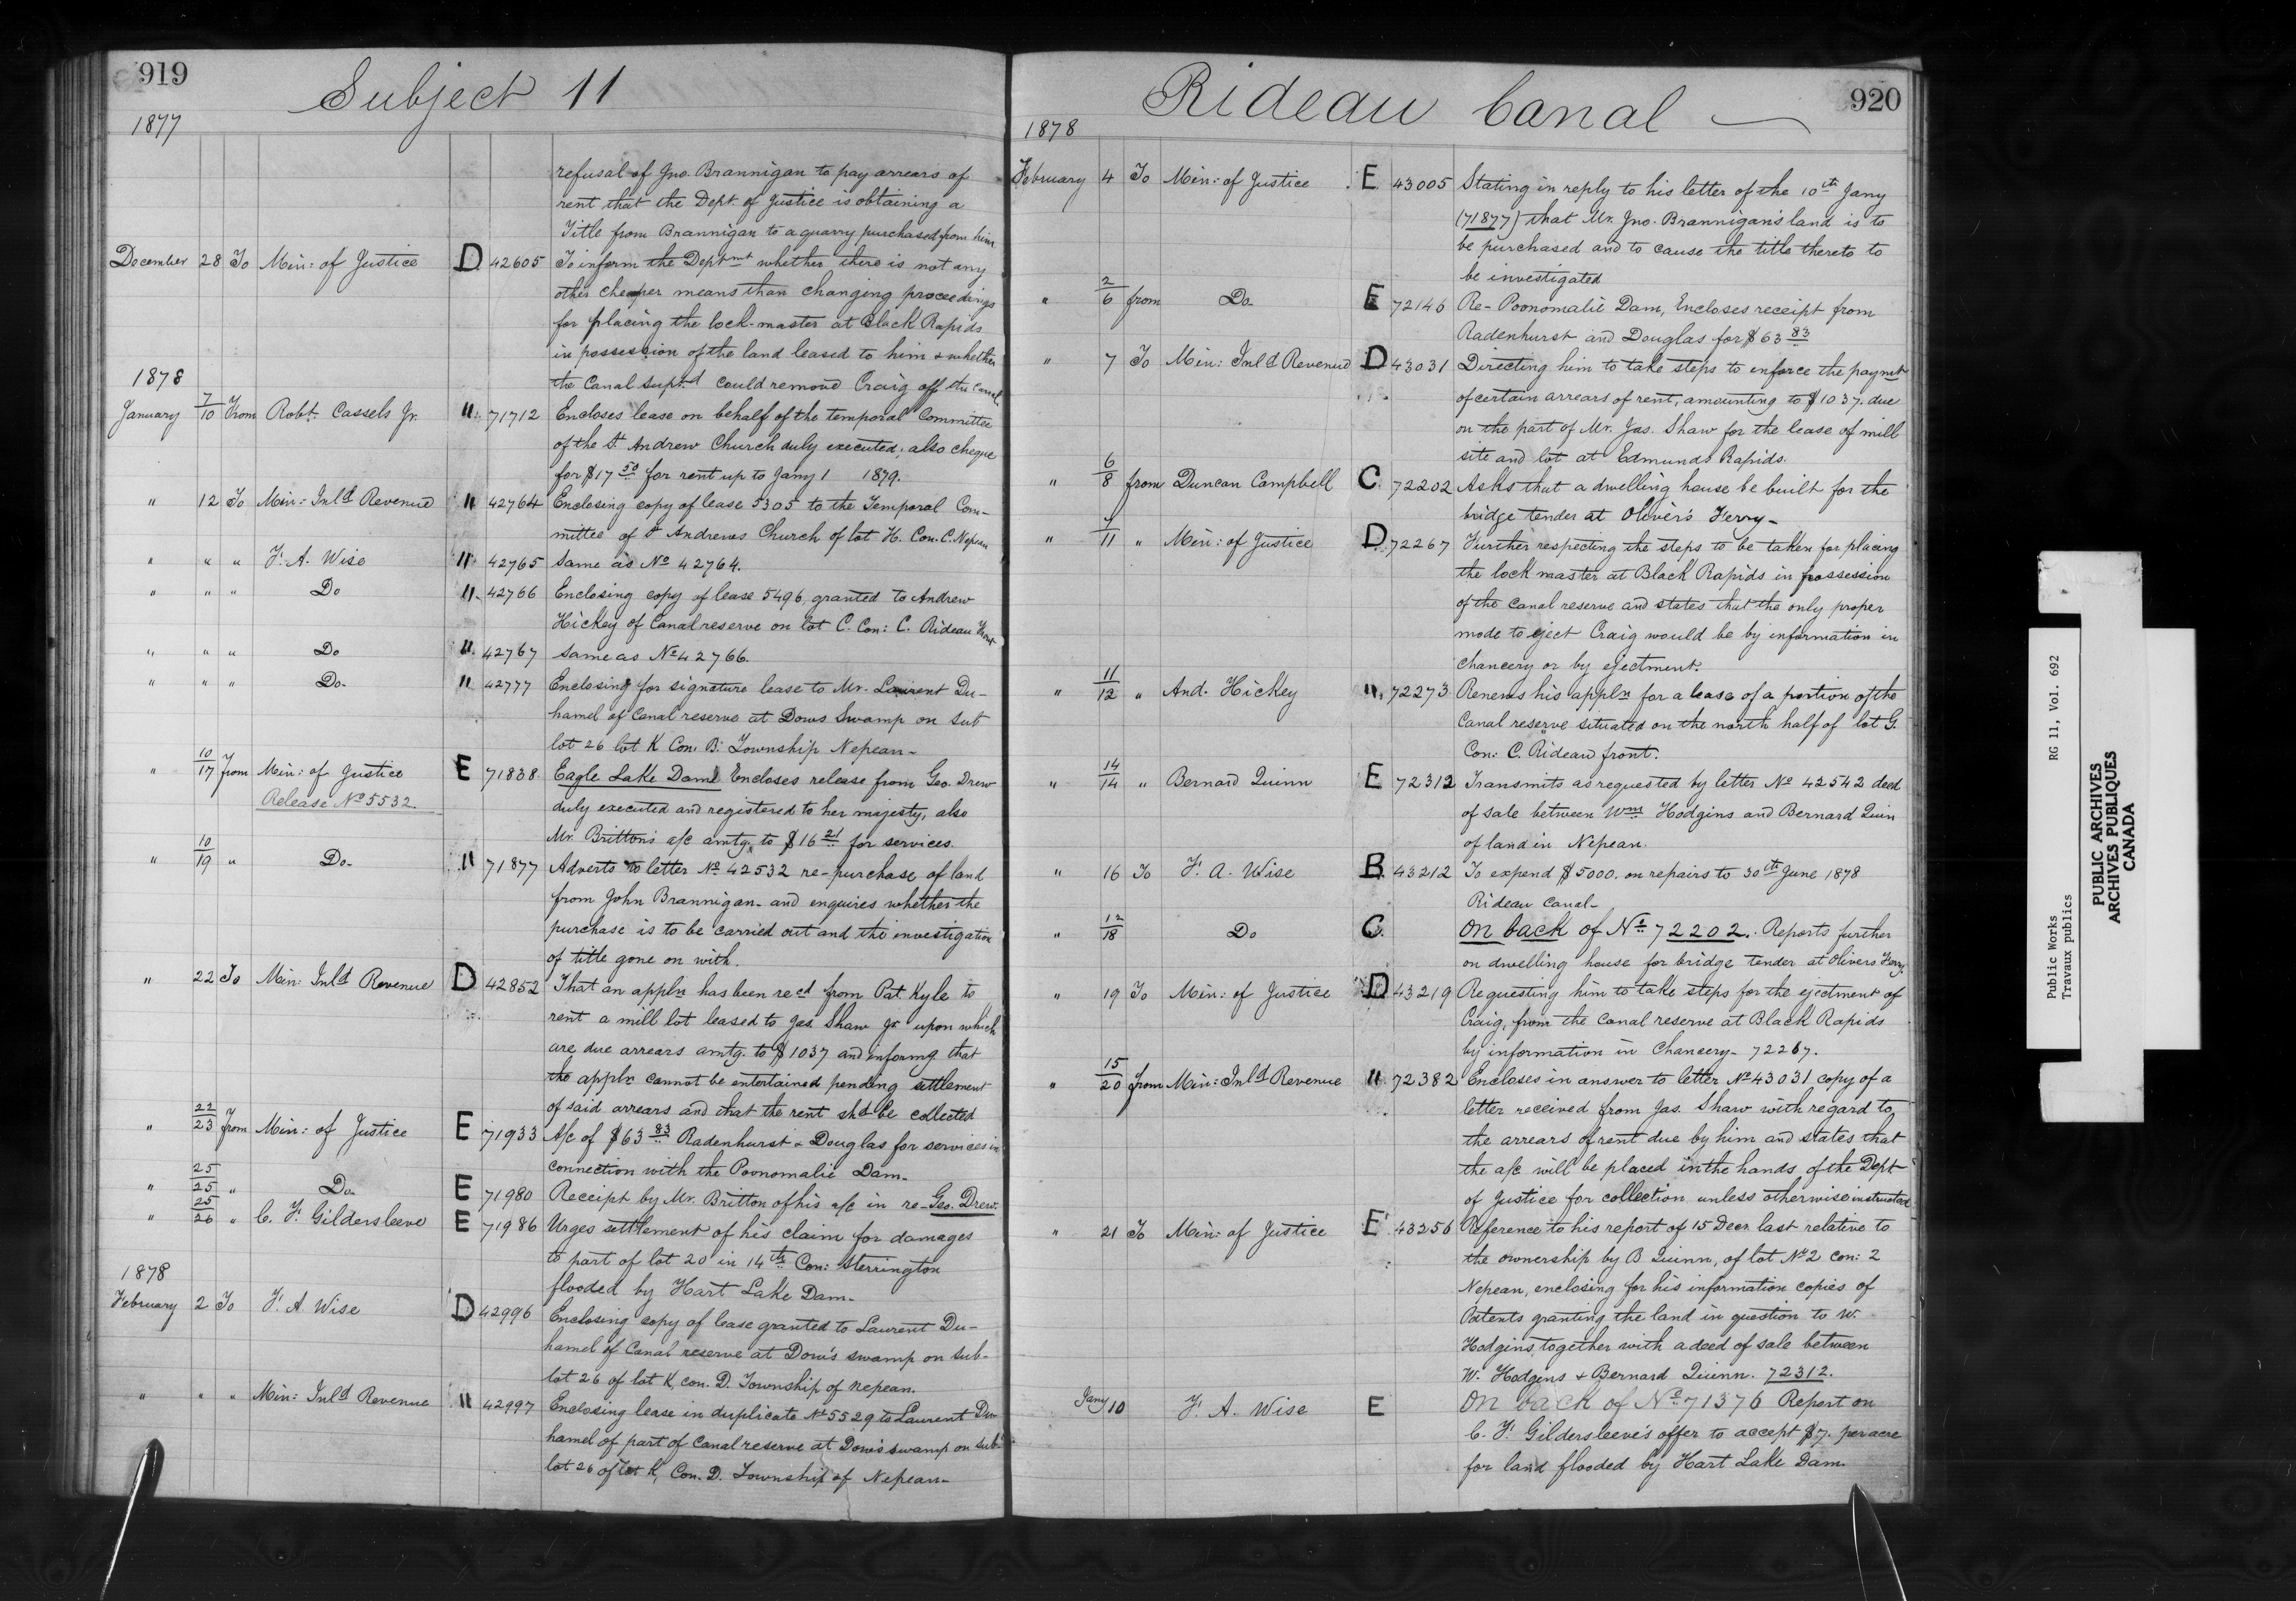 919
Subject 11
1877
refusal of Jno. Brannigan to pay arrears of
rent that the Dept. of Justice is obtaining a
Title from Brannigan to a quarry purchased from him
December 28 To Min: of Justice D 42605 To inform the Deptmt whether there is not any
other cheaper means than changing proceedings
for placing the lock-master at Black Rapids
in possession of the land leased to him & whether
the Canal Suptd could remove Craig off the Canal
1878
January 7/10 From Robt. Cassels Jr. " 71712 Encloses lease on behalf of the temporal Committee
of the St Andrew Church duly executed; also cheque
for $17 50 for rent up to Jany 1 1879.
" 12 To Min: Inld Revenue " 42764 Enclosing copy of lease 5305 to the Temporal Com-
mittee of St Andrews Church of lot H. Con. C. Nepean
" " " F. A. Wise " 42765 Same as No 42764.
" " " Do " 42766 Enclosing copy of lease 5496 granted to Andrew
Hickey of Canal reserve on lot C. Con: C. Rideau Front
" " " Do " 42767 Same as No 42766.
" " " Do. " 42777 Enclosing for signature lease to Mr. Laurent Du-
hamel of Canal reserve at Dows Swamp on Sub
lot 26 lot K Con. B. Township Nepean-
" 10/17 from Min: of Justice E 71838 Eagle Lake Dam Encloses release from Geo. Drew
Release No 5532.
duly executed and registered to her majesty, also
Mr. Britton's a/c amtg. to $16 21 for services.
" 10/19 " Do. " 71877 Adverts to letter No 42532 re-purchase of land
from John Brannigan- and enquires whether the
purchase is to be carried out and the investigation
of title gone on with.
" 22 To Min: Inld Revenue D 42852 That an appln has been recd from Pat. Kyle to
rent a mill lot leased to Jas. Shaw Jr upon which
are due arrears amtg. to $1037 and informg that
the appln cannot be entertained pending settlement
of said arrears and that the rent shd be collected
" 22/23 from Min: of Justice E 71933 A/c of $63 83 Radenhurst & Douglas for services in
connection with the Poonomalie Dam.
" 25/25 " Do. E 71980 Receipt by Mr. Britton of his a/c in re-Geo. Drew.
" 25/26 " C. F. Gildersleeve E 71986 Urges settlement of his claim for damages
to part of lot 20 in 14th Con: Sterrington
flooded by Hart Lake Dam-
1878
February 2 To F. A Wise D 42996 Enclosing copy of lease granted to Laurent Du-
hamel of Canal reserve at Dow's swamp on sub-
lot 26 of lot K, con. D. Township of Nepean.
" " " Min: Inld Revenue " 42997 Enclosing lease in duplicate No 5529 to Laurent Du-
hamel of part of Canal reserve at Dow's swamp on sub-
lot 26 of lot K, Con. D. Township of Nepean-
920
Rideau Canal
1878
February 4 To Min: of Justice E 43005 Stating in reply to his letter of the 10th Jany
(71877) that Mr. Jno. Brannigan's land is to
be purchased and to cause the title thereto to
be investigated
" 2/6 from Do E 72146 Re-Poonomalie Dam, Encloses receipt from
Radenhurst and Douglas for $63 83
" 7 To Min: Inld Revenue D 43031 Directing him to take steps to enforce the paymt
of certain arrears of rent, amounting to $1037. due
on the part of Mr. Jas. Shaw for the lease of mill
site and lot at Edmunds Rapids.
" 6/8 from Duncan Campbell C 72202 Asks that a dwelling house be built for the
bridge tender at Oliver's Ferry-
" 9/11 " Min: of Justice D 72267 Further respecting the steps to be taken for placing
the lock master at Black Rapids in possession
of the canal reserve and states that the only proper
mode to eject Craig would be by information in
chancery or by ejectment.
" 11/12 " And. Hickey " 72273 Renews his appln for a lease of a portion of the
Canal reserve situated on the north half of lot G.
Con: C. Rideau front.
" 14/14 " Bernard Quinn E 72312 Transmits as requested by letter No 42542 deed
of sale between Wm Hodgins and Bernard Quin
of land in Nepean.
" 16 To F. A. Wise B 43212 To expend $5000. on repairs to 30th June 1878
Rideau Canal-
" 12/18 Do C. On back of No 72202. Reports further
on dwelling house for bridge tender at Olivers Ferry.
" 19 To Min: of Justice D 43219 Requesting him to take steps for the ejectment of
Craig, from the Canal reserve at Black Rapids
by information in Chancery- 72267.
" 15/20 from Min: Inld Revenue " 72382 Encloses in answer to letter No 43031 copy of a
letter received from Jas. Shaw with regard to
the arrears of rent due by him and states that
the a/c will be placed in the hands of the Dept
of Justice for collection unless otherwise instructed
" 21 To Min: of Justice E 43256 Reference to his report of 15 Decr last relative to
the ownership by B Quinn, of lot No 2 con: 2
Nepean, enclosing for his information copies of
Patents granting the land in question to W.
Hodgins, together with a deed of sale between
W. Hodgins & Bernard Quinn. 72312.
Jany 10 F. A. Wise E On back of No 71376 Report on
C. F. Gildersleeve's offer to accept $7. per acre
for land flooded by Hart Lake Dam.
Public Works RG 11, Vol. 692
Travaux publics
PUBLIC ARCHIVES
ARCHIVES PUBLIQUES
CANADA